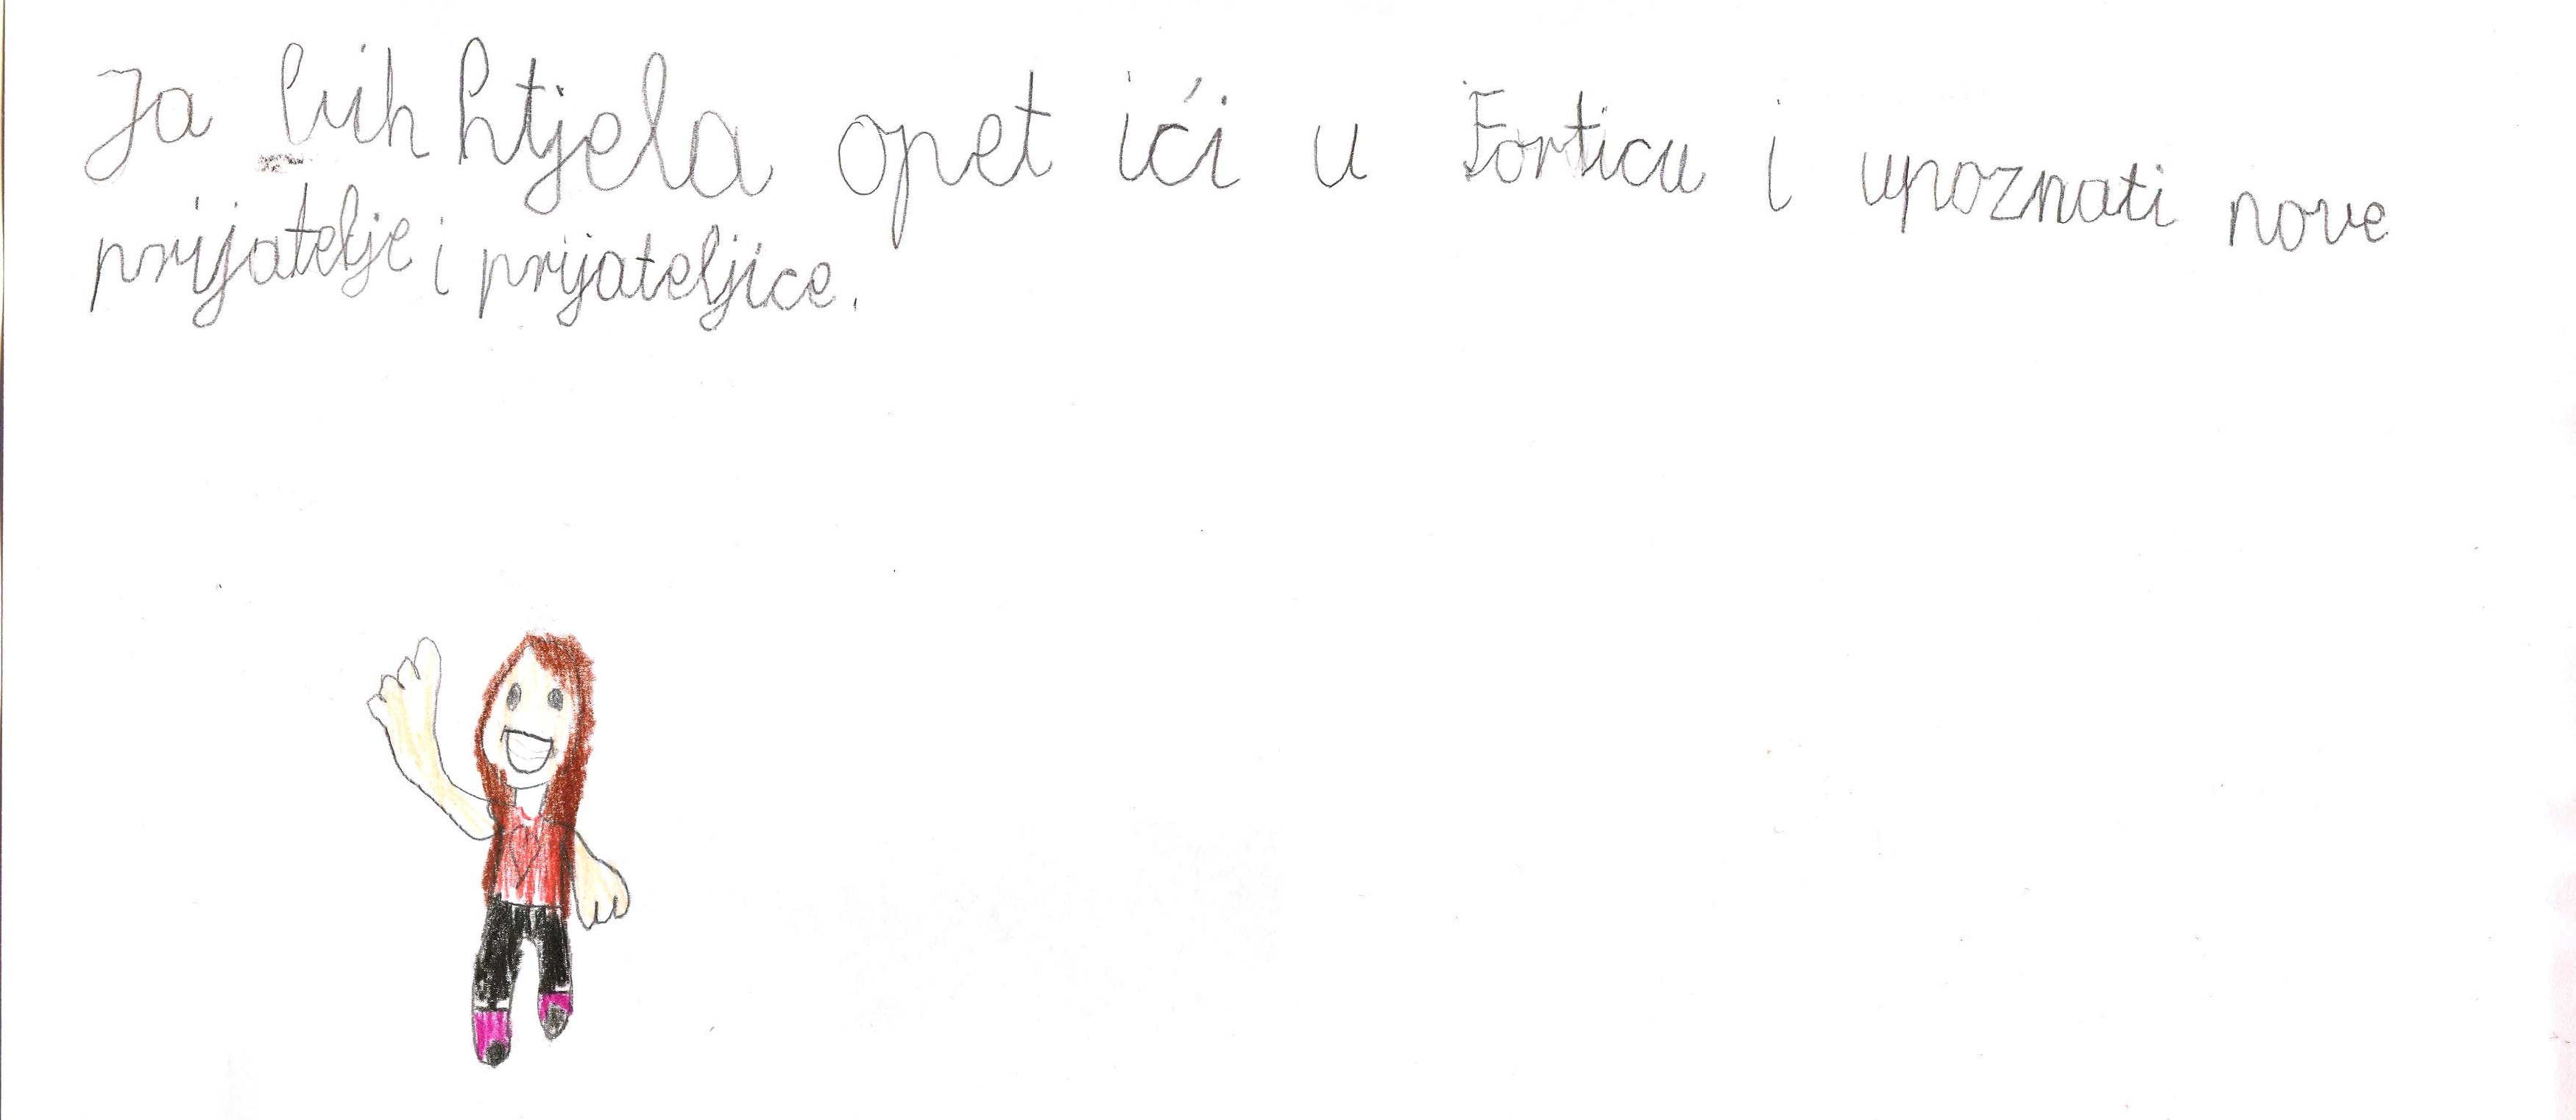 Ja bih htjela opet ići u Forticu i upoznati nove
prijatelje i prijateljice.